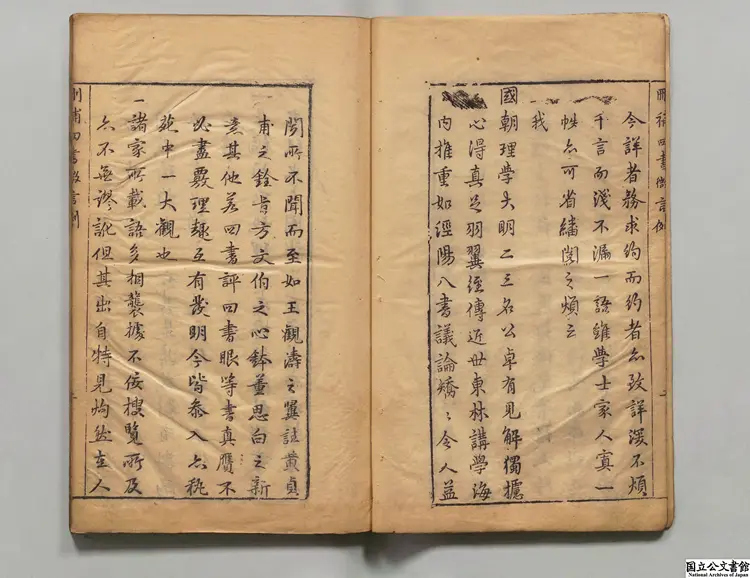 刪補四書微言例
今詳者務求約而約者亦致詳深不煩
千言而淺不漏一語雖學士家人寘一
帙亦可省繙閱之煩云
我
國朝理學大明二三名公卓有見解獨攄
心得真足羽翼經傳近世東林講學海
内推重如涇陽八書議論矯〻令人益
聞所不聞而至如王觀濤之翼註黃貞
甫之銓旨方文伯之心鉢董思白之新
意其他若四書評四書眼等書真贋不
必盡覈理趣互有發明今皆叅入亦秇
苑中一大觀也
一諸家所載語多相襲據不佞搜覽所及
亦不無謬訛但其出自特見灼然在人
刪補四書微言例
国立公文書館
National Archives of Japan